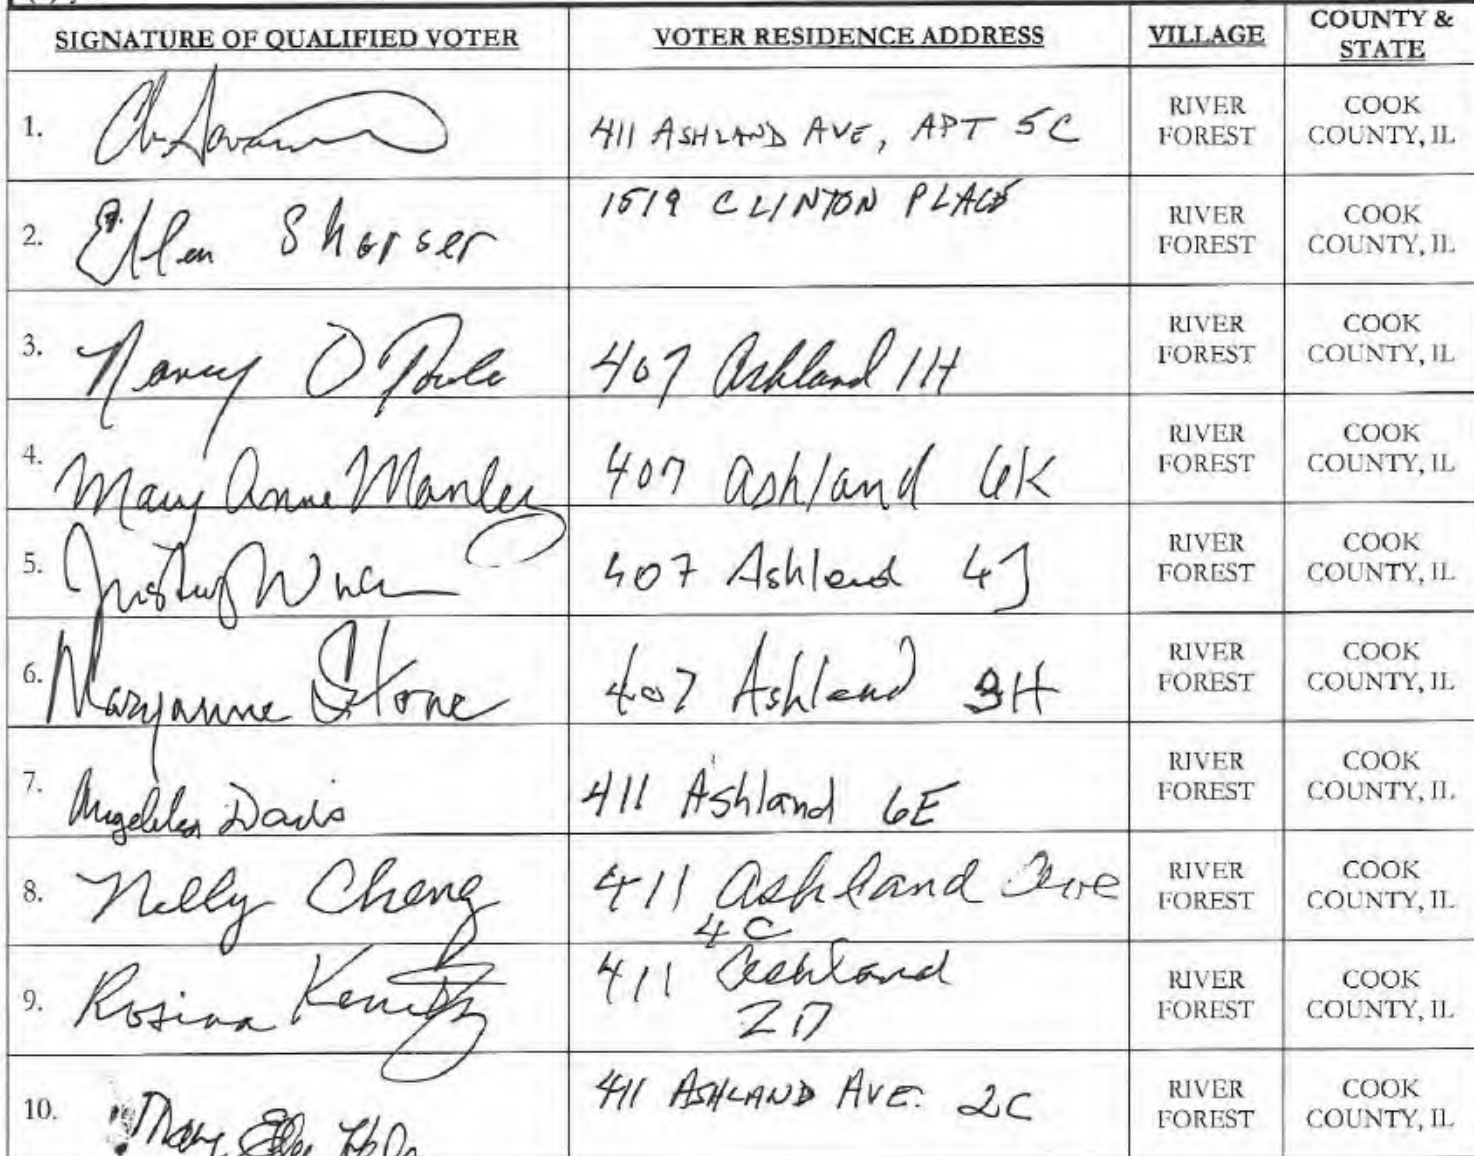 SIGNATURE OF QUALIFIED VOTER VOTER RESIDENCE ADDRESS VILLAGE COUNTY & STATE
1. 411 ASHLAND AVE, APT 5C RIVER FOREST COOK COUNTY, IL
2. Ellen Shorser 1519 CLINTON PLACE RIVER FOREST COOK COUNTY, IL
3. Nancy O 407 Ashland 1H RIVER FOREST COOK COUNTY, IL
4. Mary Anne Manley 407 Ashland 6K RIVER FOREST COOK COUNTY, IL
5. 407 Ashland 4J RIVER FOREST COOK COUNTY, IL
6. Maryanne Stone 407 Ashland 3H RIVER FOREST COOK COUNTY, IL
7. Davis 411 Ashland 6E RIVER FOREST COOK COUNTY, IL
8. Nelly Cheng 411 Ashland Ave 4C RIVER FOREST COOK COUNTY, IL
9. Rosina 411 Ashland 2D RIVER FOREST COOK COUNTY, IL
10. Mary 411 ASHLAND AVE. 2C RIVER FOREST COOK COUNTY, IL